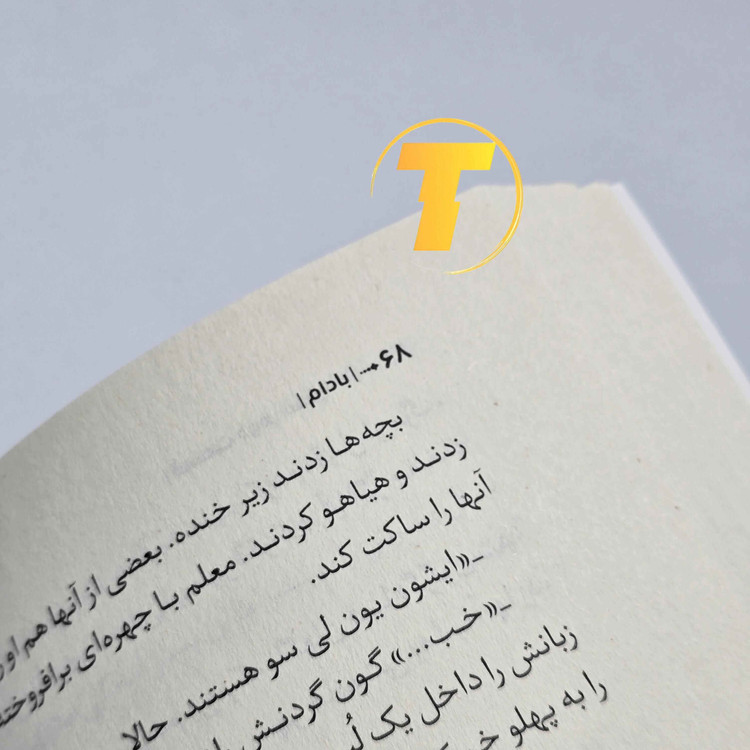 T
۶۸ | بادام |
بچه‌ها زدند زیر خنده. بعضی از آنها هم
زدند و هیاهو کردند. معلم با چهره‌ای برافروخته
آنها را ساکت کند.
ـ«ایشون یون لی سو هستند. حالا
ـ«خب...» گون گردنش
زبانش را داخل یک
را به پهلو